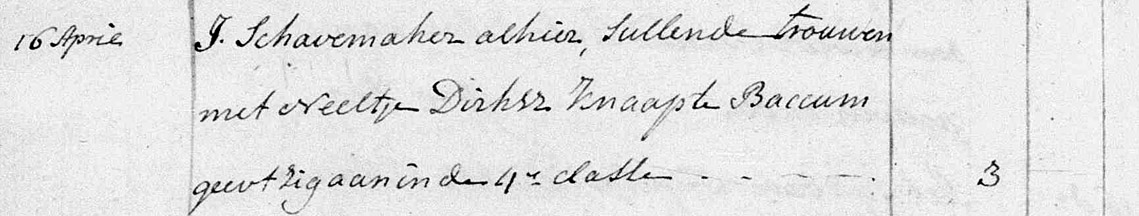 16 April J. Schavemaker alhier, Sullende trouwen
met Neeltje Dirksz Knaap te Baccum
geevt zig aan in de 4e Classe - - - - 3